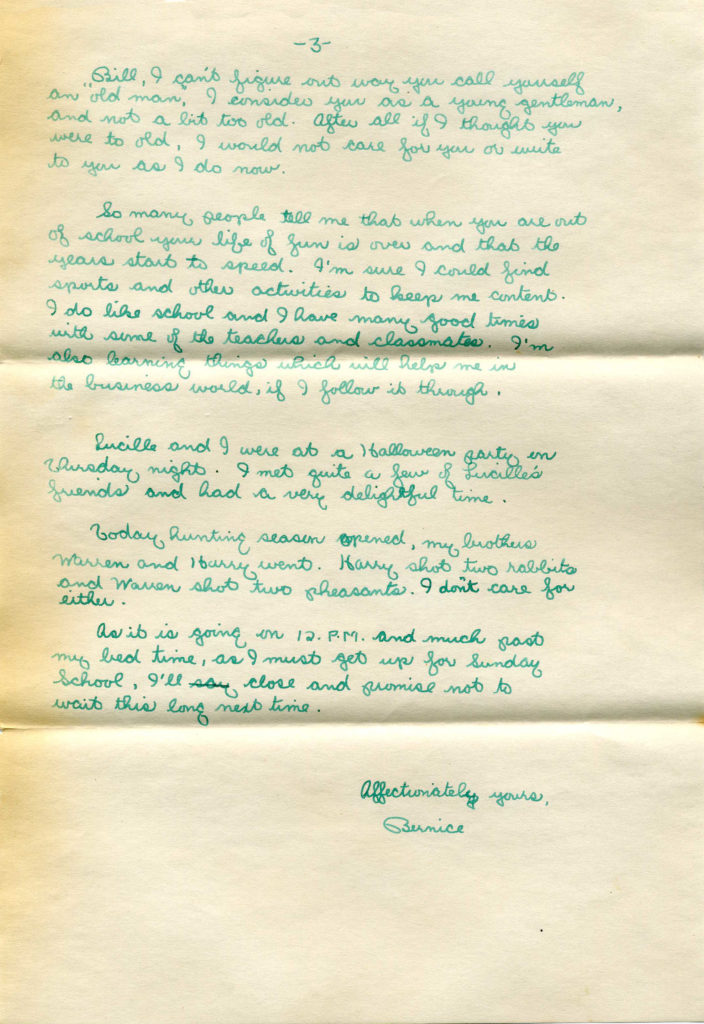 -3-
Bill, I can't figure out way you call yourself
an "old man", I consider you as a young gentleman,
and not a bit too old. After all if I thought you
were to old, I would not care for you or write
to you as I do now.
So many people tell me that when you are out
of school your life of fun is over and that the
years start to speed. I'm sure I could find
sports and other activities to keep me content.
I do like school and I have many good times
with some of the teachers and classmates. I'm
also learning things which will help me in
the business world, if I follow it through.
Lucille and I were at a Halloween party on
Thursday night. I met quite a few of Lucille's
friends and had a very delightful time.
Today hunting season opened, my brothers
Warren and Harry went. Harry shot two rabbits
and Warren shot two pheasants. I don't care for
either.
As it is going on 12. P.M. and much past
my bed time, as I must get up for Sunday
School, I'll say close and promise not to
wait this long next time.
Affectionately yours,
Bernice